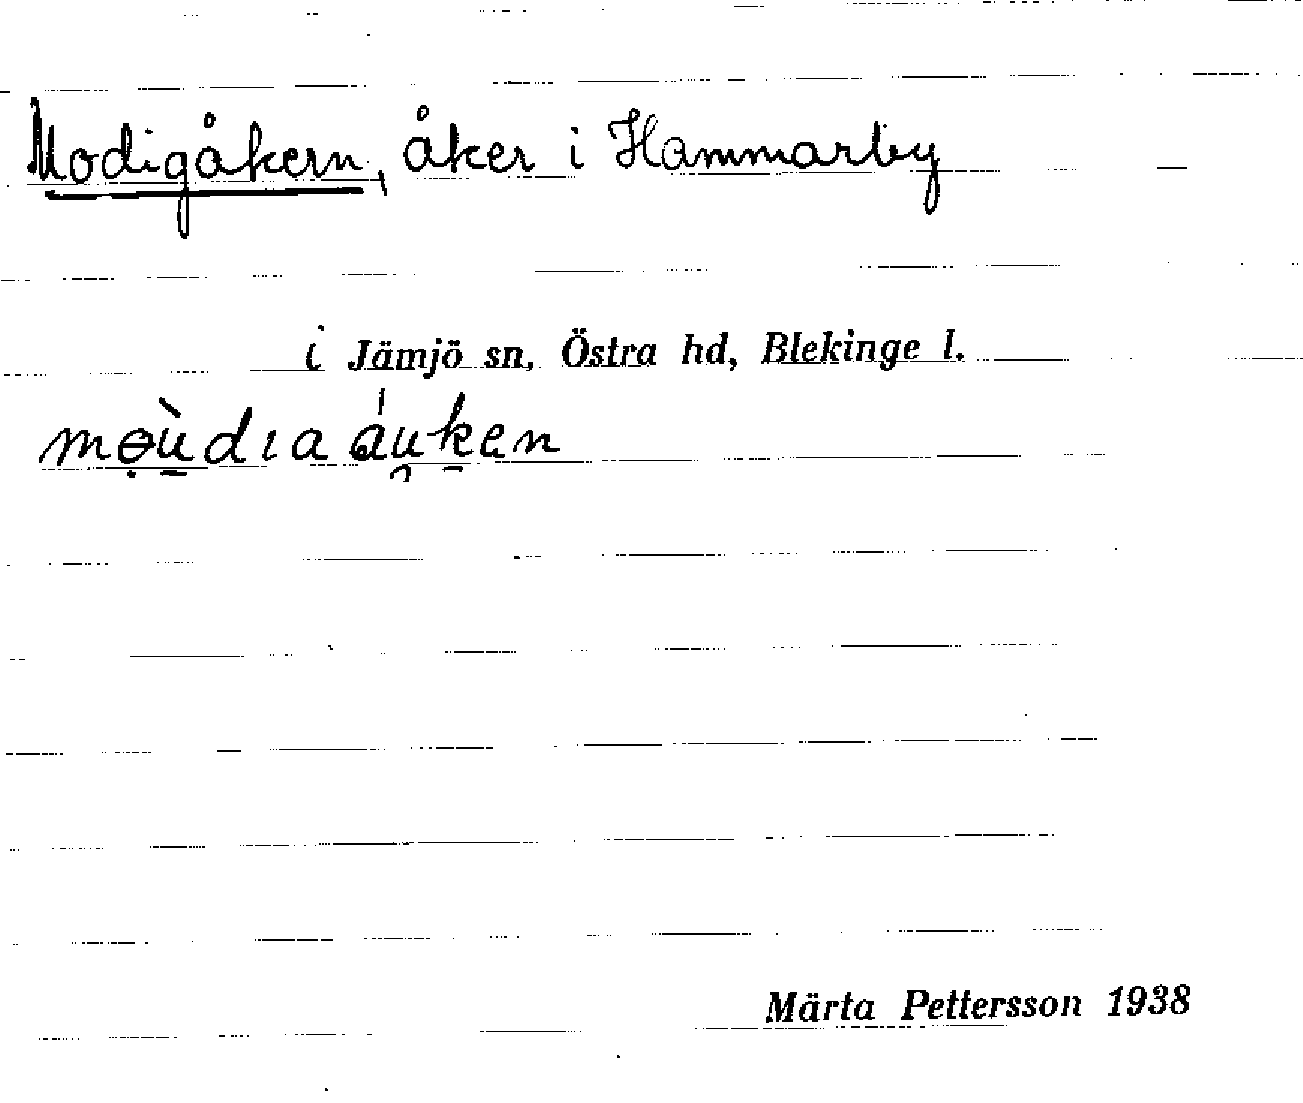 Modigåkern, åker i Hammarby
i Jämjö sn, Östra hd, Blekinge l.
mɵ̣ù̱dıa áu̯ḵen
Märta Pettersson 1938